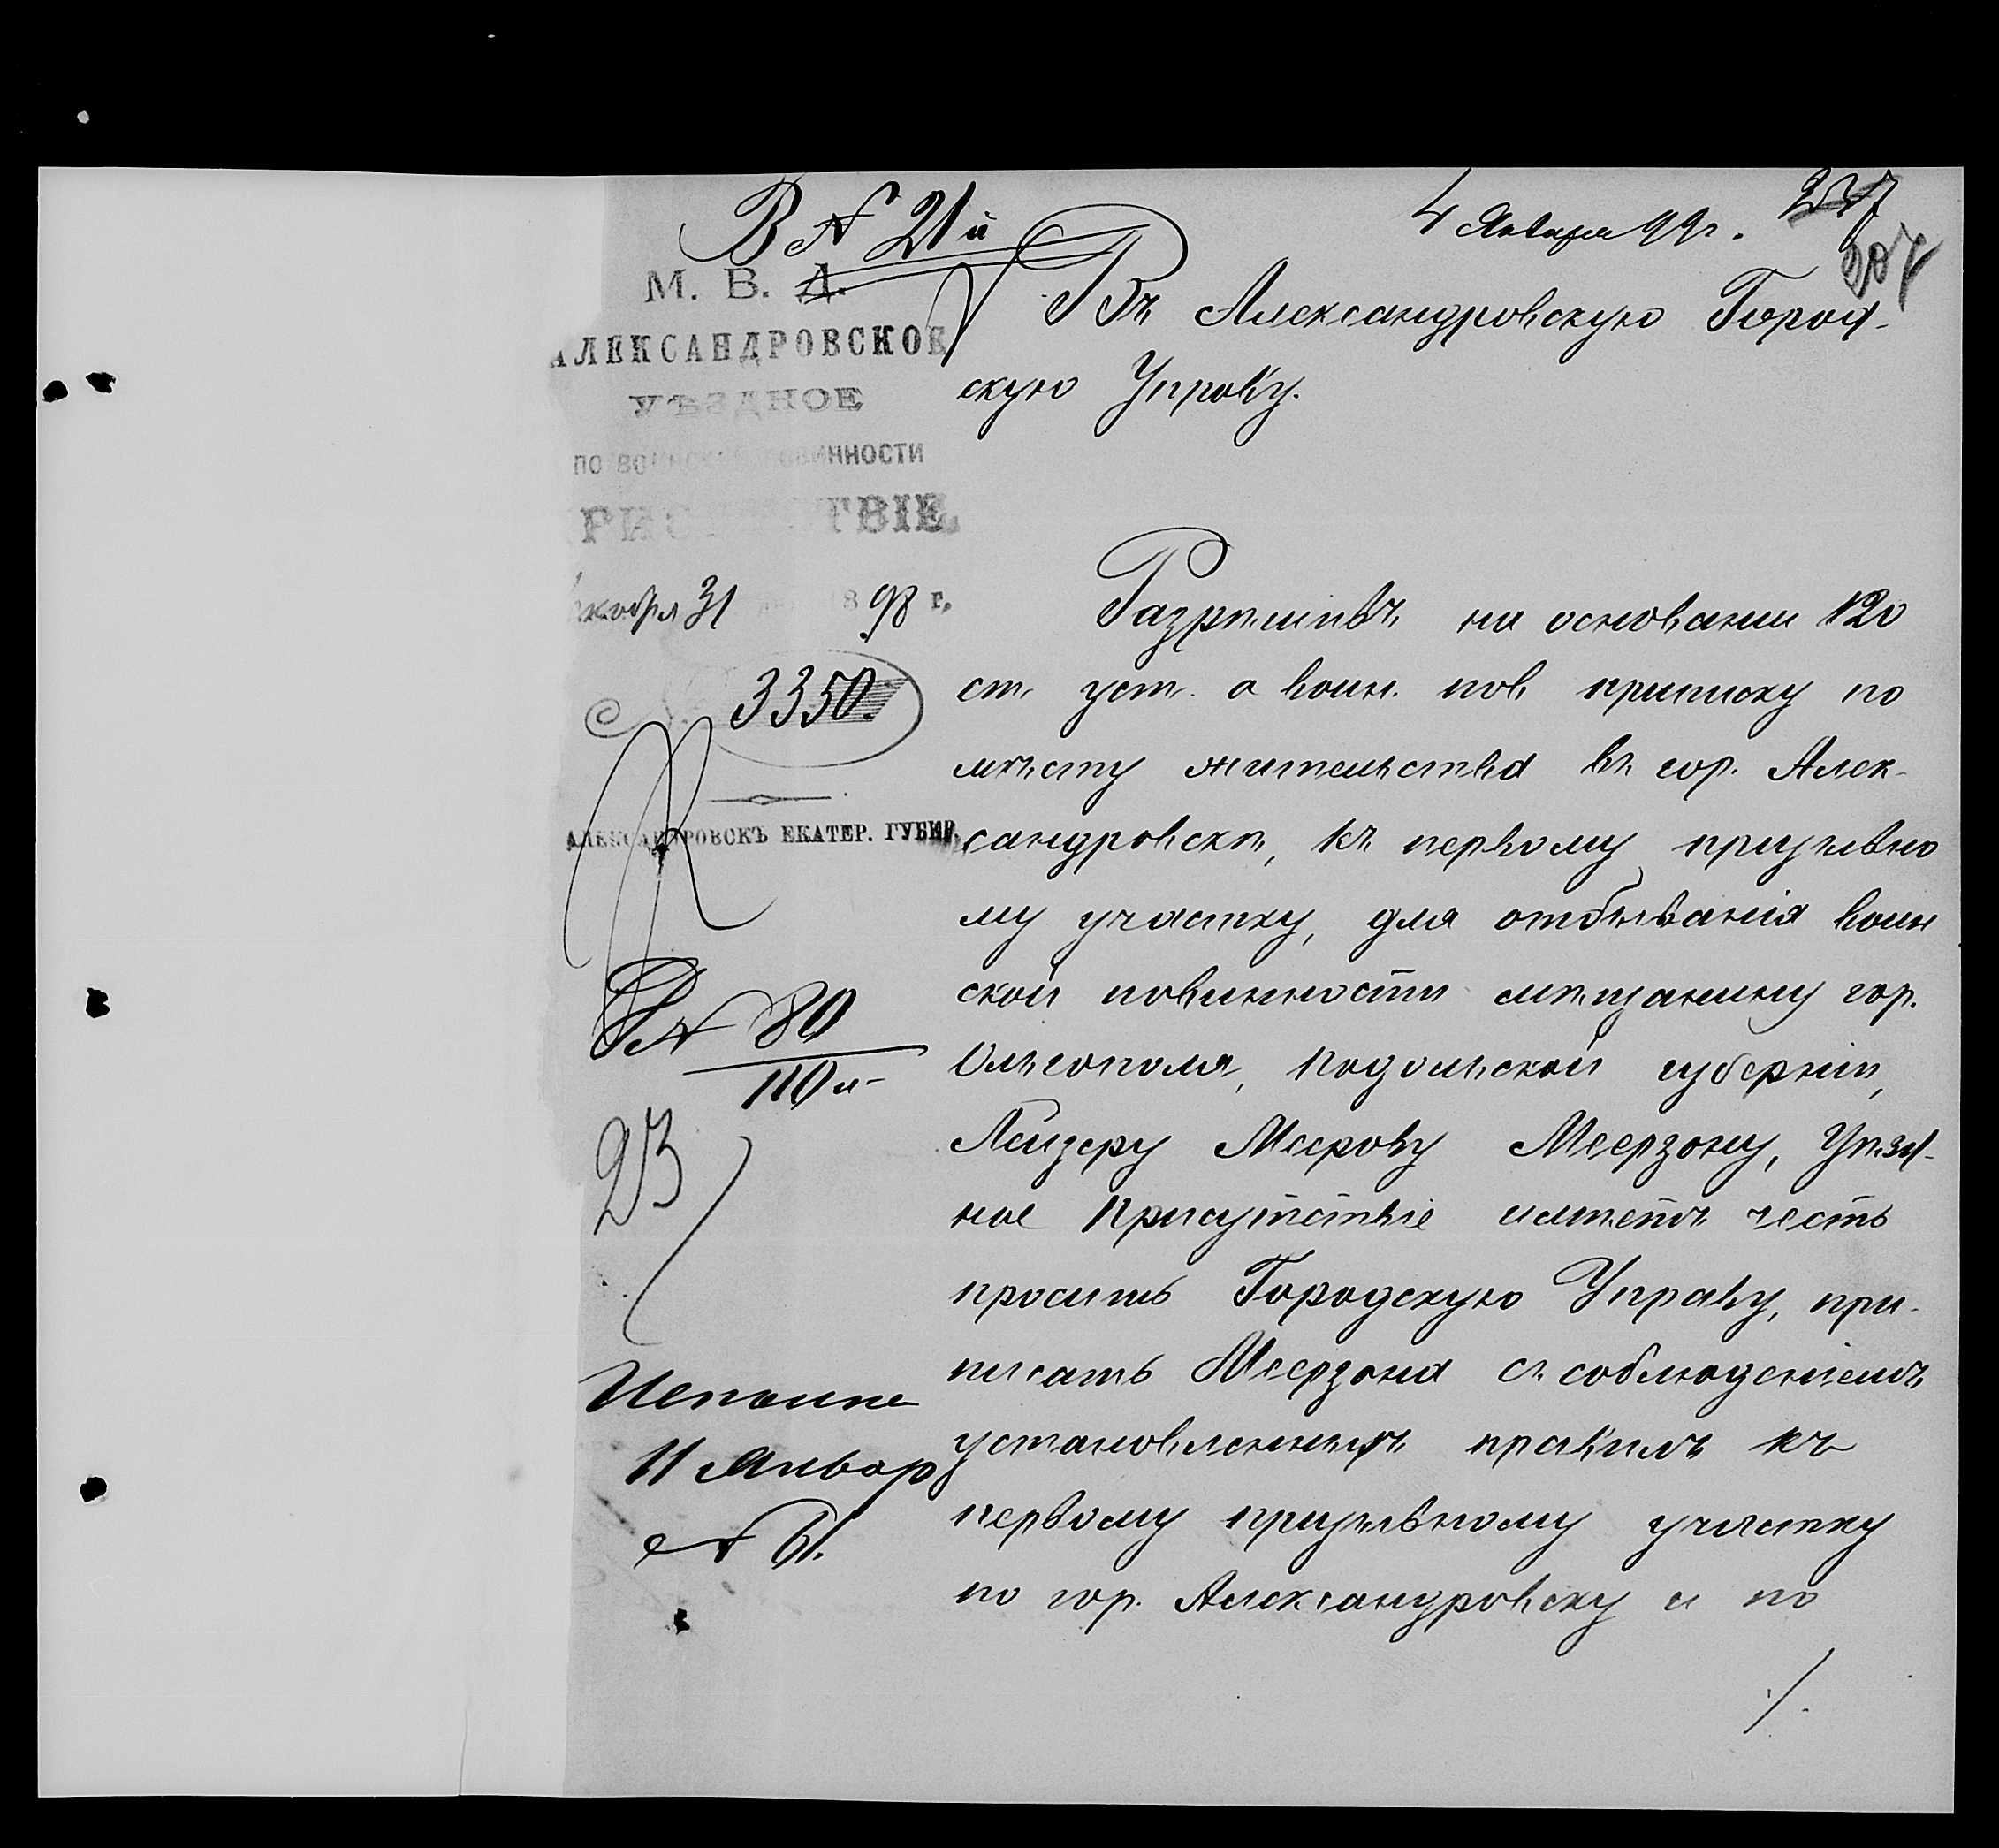 В № 21й
4 Января 99 г.
237
307
М. В. Д.
АЛЕКСАНДРОВСКОЕ
УѢЗДНОЕ
ПО ВОИНСКОЙ ПОВИННОСТИ
ПРИСУТСТВІЕ.
Декабря 31 1898 г.
3350.
АЛЕКСАНДРОВСКЪ ЕКАТЕР. ГУБЕР.
№ 80
110
23
Исполне
11 Январ
№ 61.
Въ Александровскую Город-
скую Управу.
Разрѣшивъ на основании 120
ст. уст. о воин. пов. приписку по
мѣсту жительства въ гор. Алек-
сандровскѣ, къ первому призывно
му участку, для отбыванія воин
ской повинности мѣщанину гор.
Ольгополя, Подольской губерніи,
Лейзеру Меерову Меерзону, Уѣзд-
ное Присутствіе имѣетъ честь
просить Городскую Управу, при-
писать Меерзона съ соблюденіемъ
установленныхъ правилъ къ
первому призывному участку
по гор. Александровску и по
./.